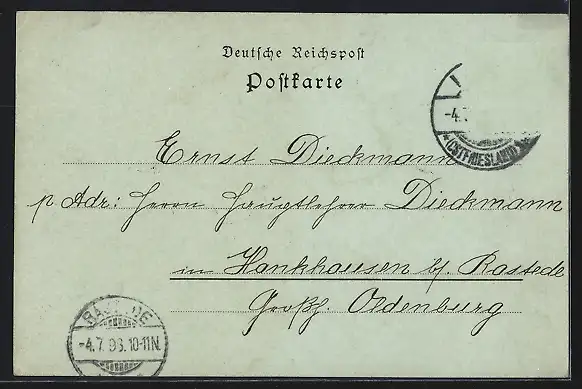 Deutsche Reichspost
Postkarte
-4.7
* (OSTFRIESLAND)
Ernst Dieckmann
p. Adr: Herrn Hauptlehrer Dieckmann
in Hankhausen b/. Rastede
Großh. Oldenburg
RASTEDE
-4.7.98.10-11N.